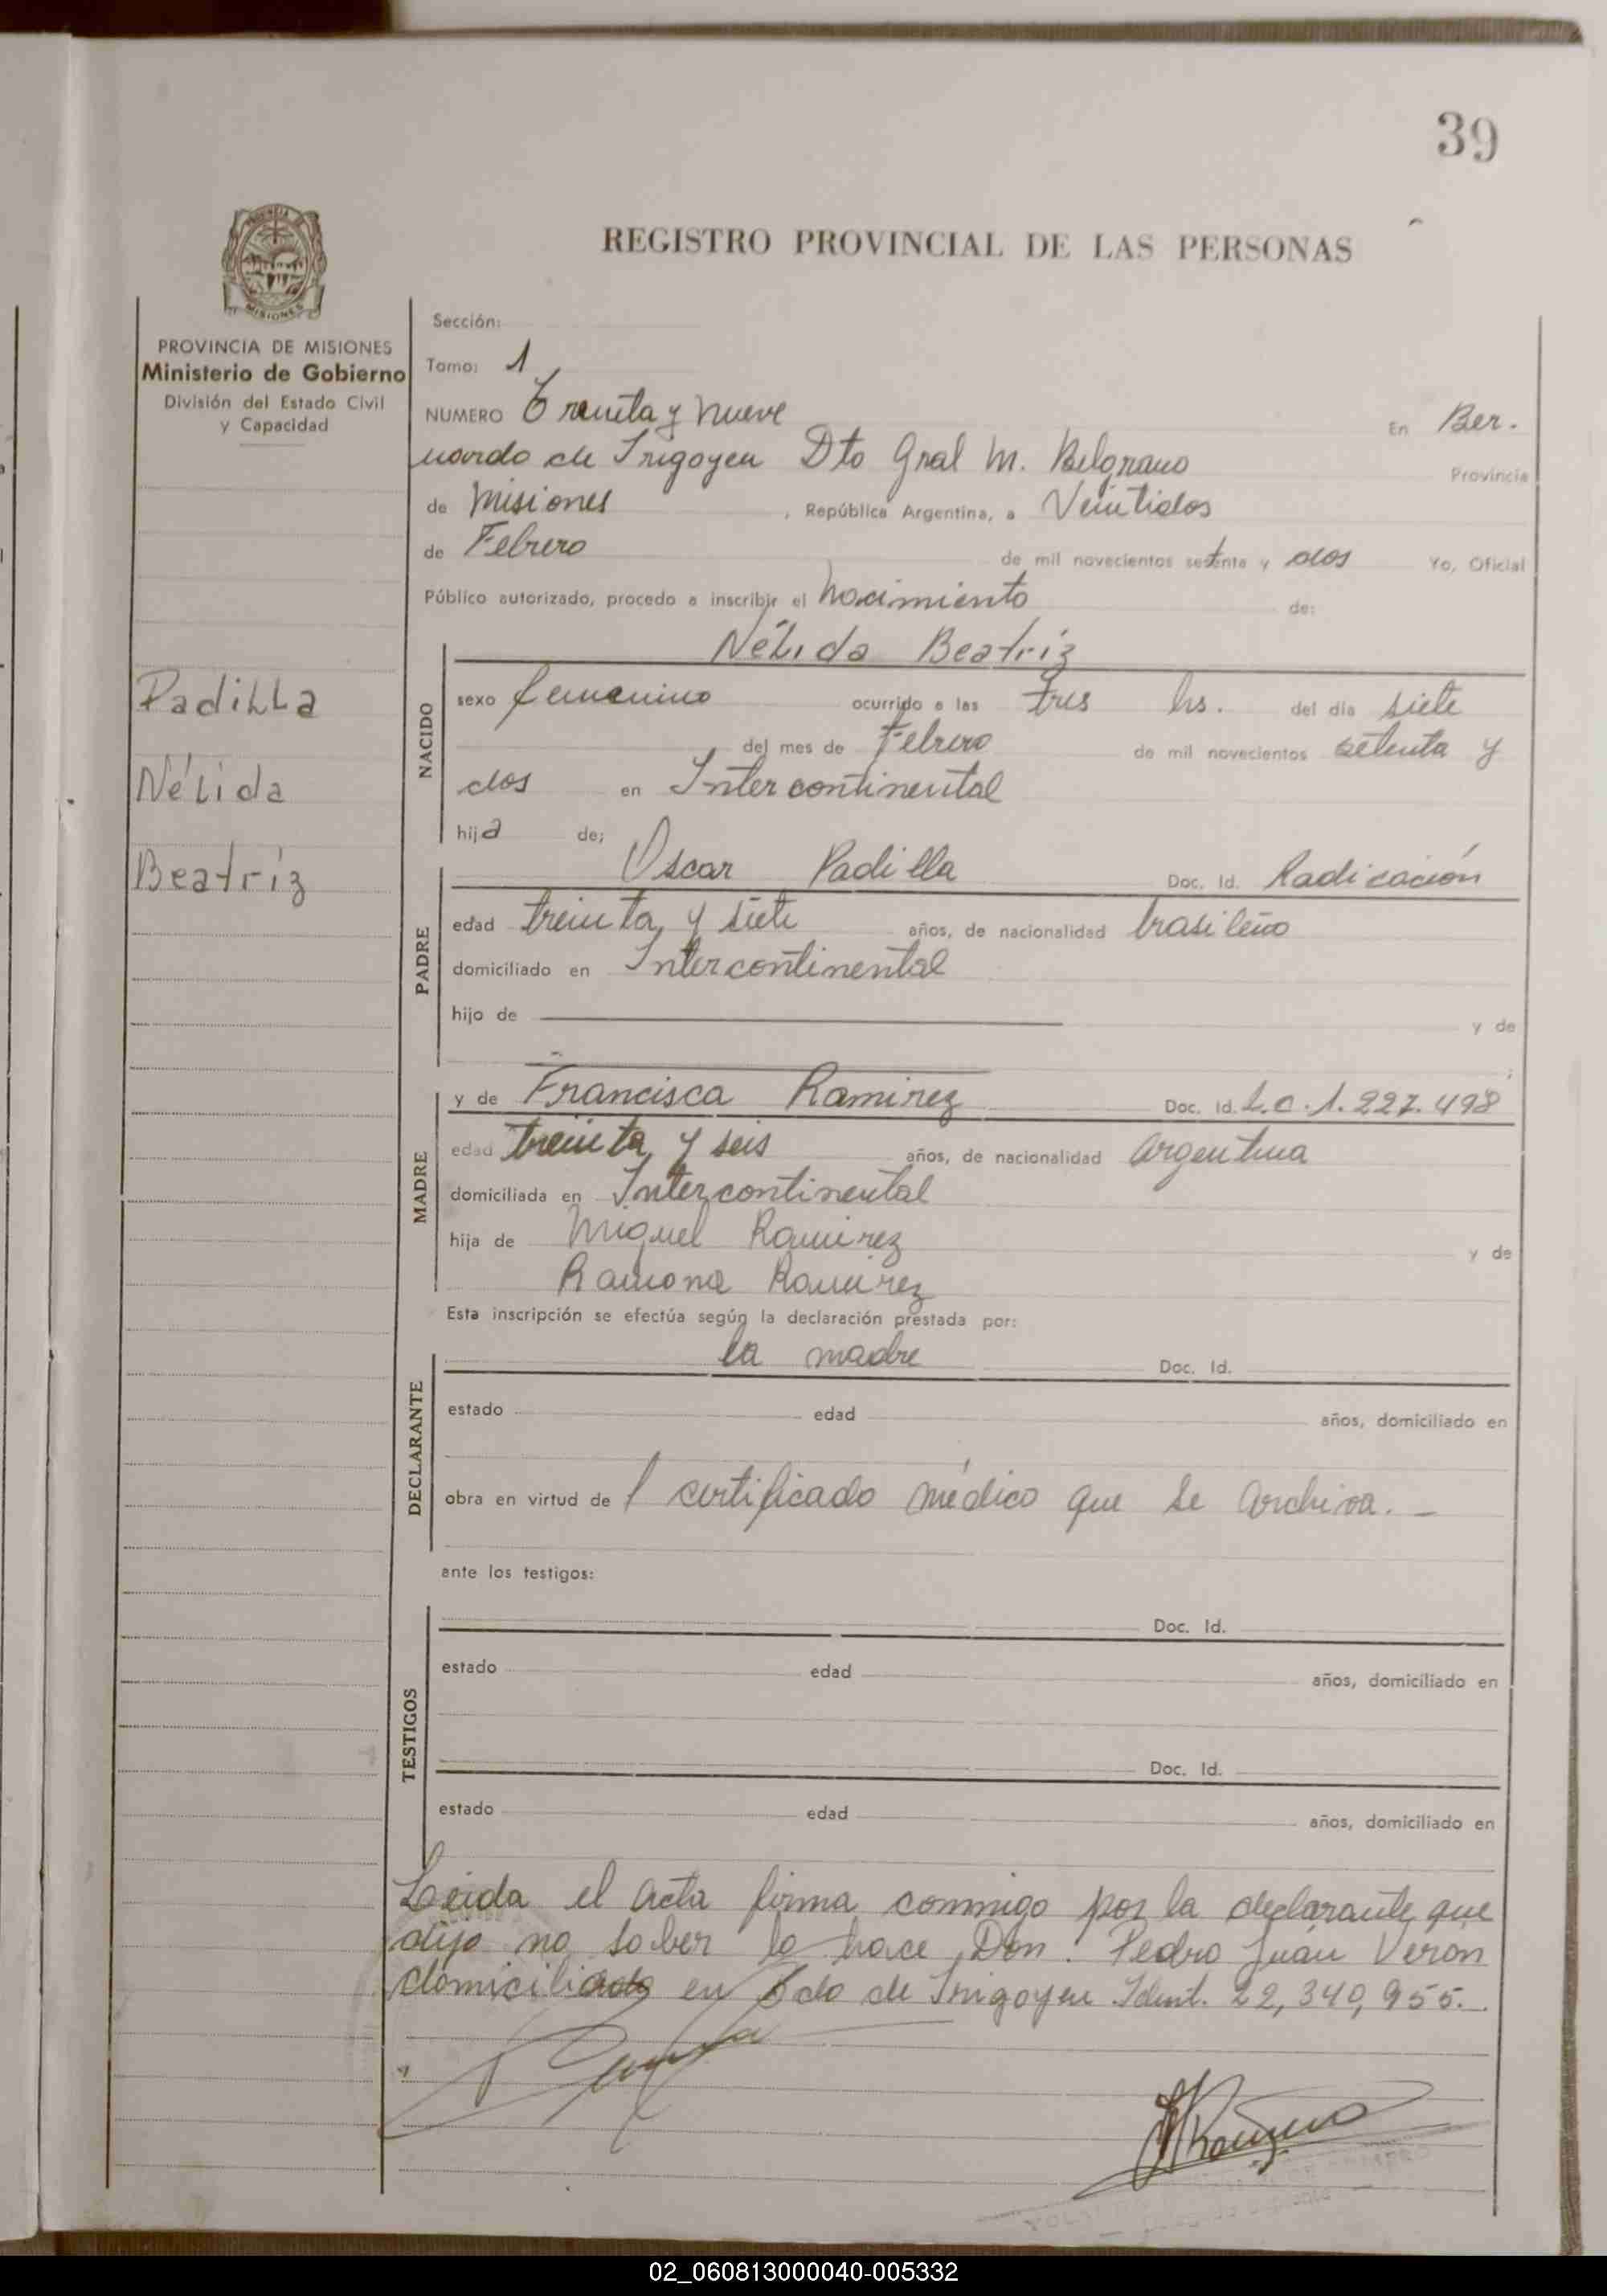 39
REGISTRO PROVINCIAL DE LAS PERSONAS
PROVINCIA DE MISIONES
Ministerio de Gobierno
División del Estado Civil
y Capacidad
Padilla
Nélida
Beatríz
Sección:
Tomo: 1
NUMERO Treinta y nueve En Ber.
nardo de Irigoyen Dto Gral M. Belgrano Provincia
de Misiones, República Argentina, a Veintidos
de Febrero de mil novecientos setenta y dos Yo, Oficial
Público autorizado, procedo a inscribir el nacimiento de:
Nélida Beatríz
NACIDO
sexo femenino ocurrido a las tres hs. del día siete
del mes de Febrero de mil novecientos setenta y
dos en Intercontinental
hija de;
Oscar Padilla Doc. Id. Radicación
PADRE
edad treinta y siete años, de nacionalidad brasileño
domiciliado en Intercontinental
hijo de y de
y de Francisca Ramirez Doc. Id. L.C. 1.227.498
MADRE
edad treinta y seis años, de nacionalidad argentina
domiciliada en Intercontinental
hija de Miguel Ramirez y de
Ramona Ramirez
Esta inscripción se efectúa según la declaración prestada por:
la madre Doc. Id.
DECLARANTE
estado edad años, domiciliado en
obra en virtud de l certificado médico que se archiva. –
ante los testigos:
Doc. Id.
TESTIGOS
estado edad años, domiciliado en
Doc. Id.
estado edad años, domiciliado en
Leida el acta firma conmigo por la declarante que
dijo no saber lo hace Don: Pedro Juán Verón
domiciliado en Bdo de Irigoyen Ident. 22,340,955.
02_060813000040-005332